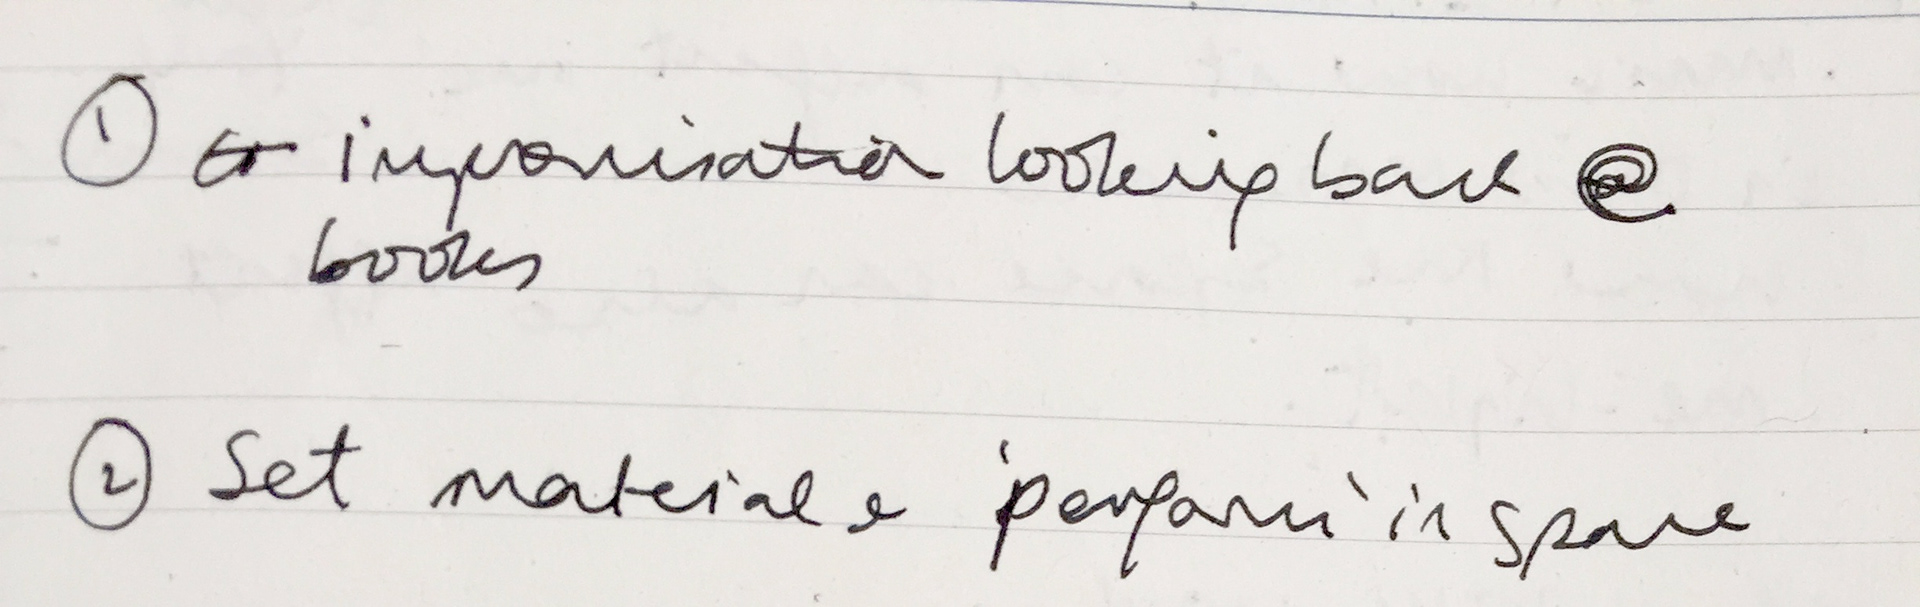 ① improvisation looking back @
books
② Set material & 'perform' in space